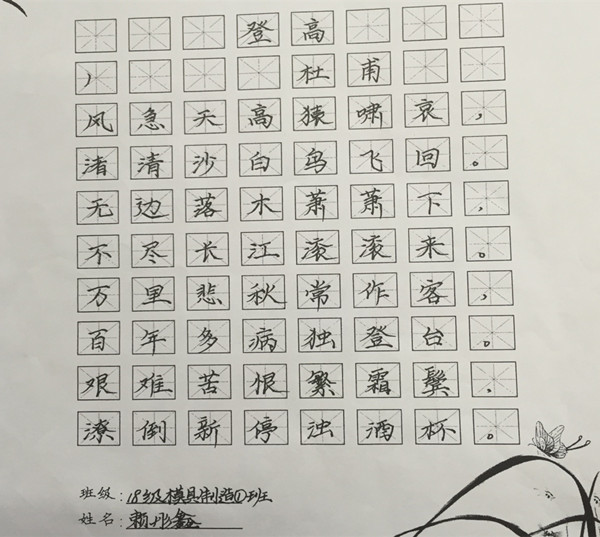 登高
杜甫
风急天高猿啸哀，
渚清沙白鸟飞回。
无边落木萧萧下，
不尽长江滚滚来。
万里悲秋常作客，
百年多病独登台。
艰难苦恨繁霜鬓，
潦倒新停浊酒杯。
班级：18级模具制造①班
姓名：赖彤鑫